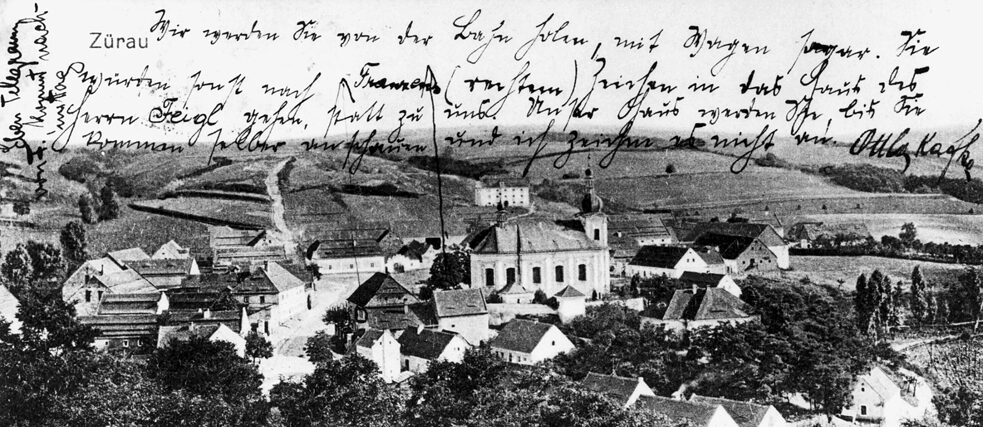 Zürau
Wir werden Sie von der Bahn holen, mit Wagen sogar. Sie
würden sonst nach Franzens (rechtem) Zeichen in das Haus des
Herrn Feigl gehen, statt zu uns. Unser Haus werden Sie, bis Sie
kommen selber anschauen und ich zeichne es nicht an. Ottla Kafka
Telegramm
kommt nach-
mittag